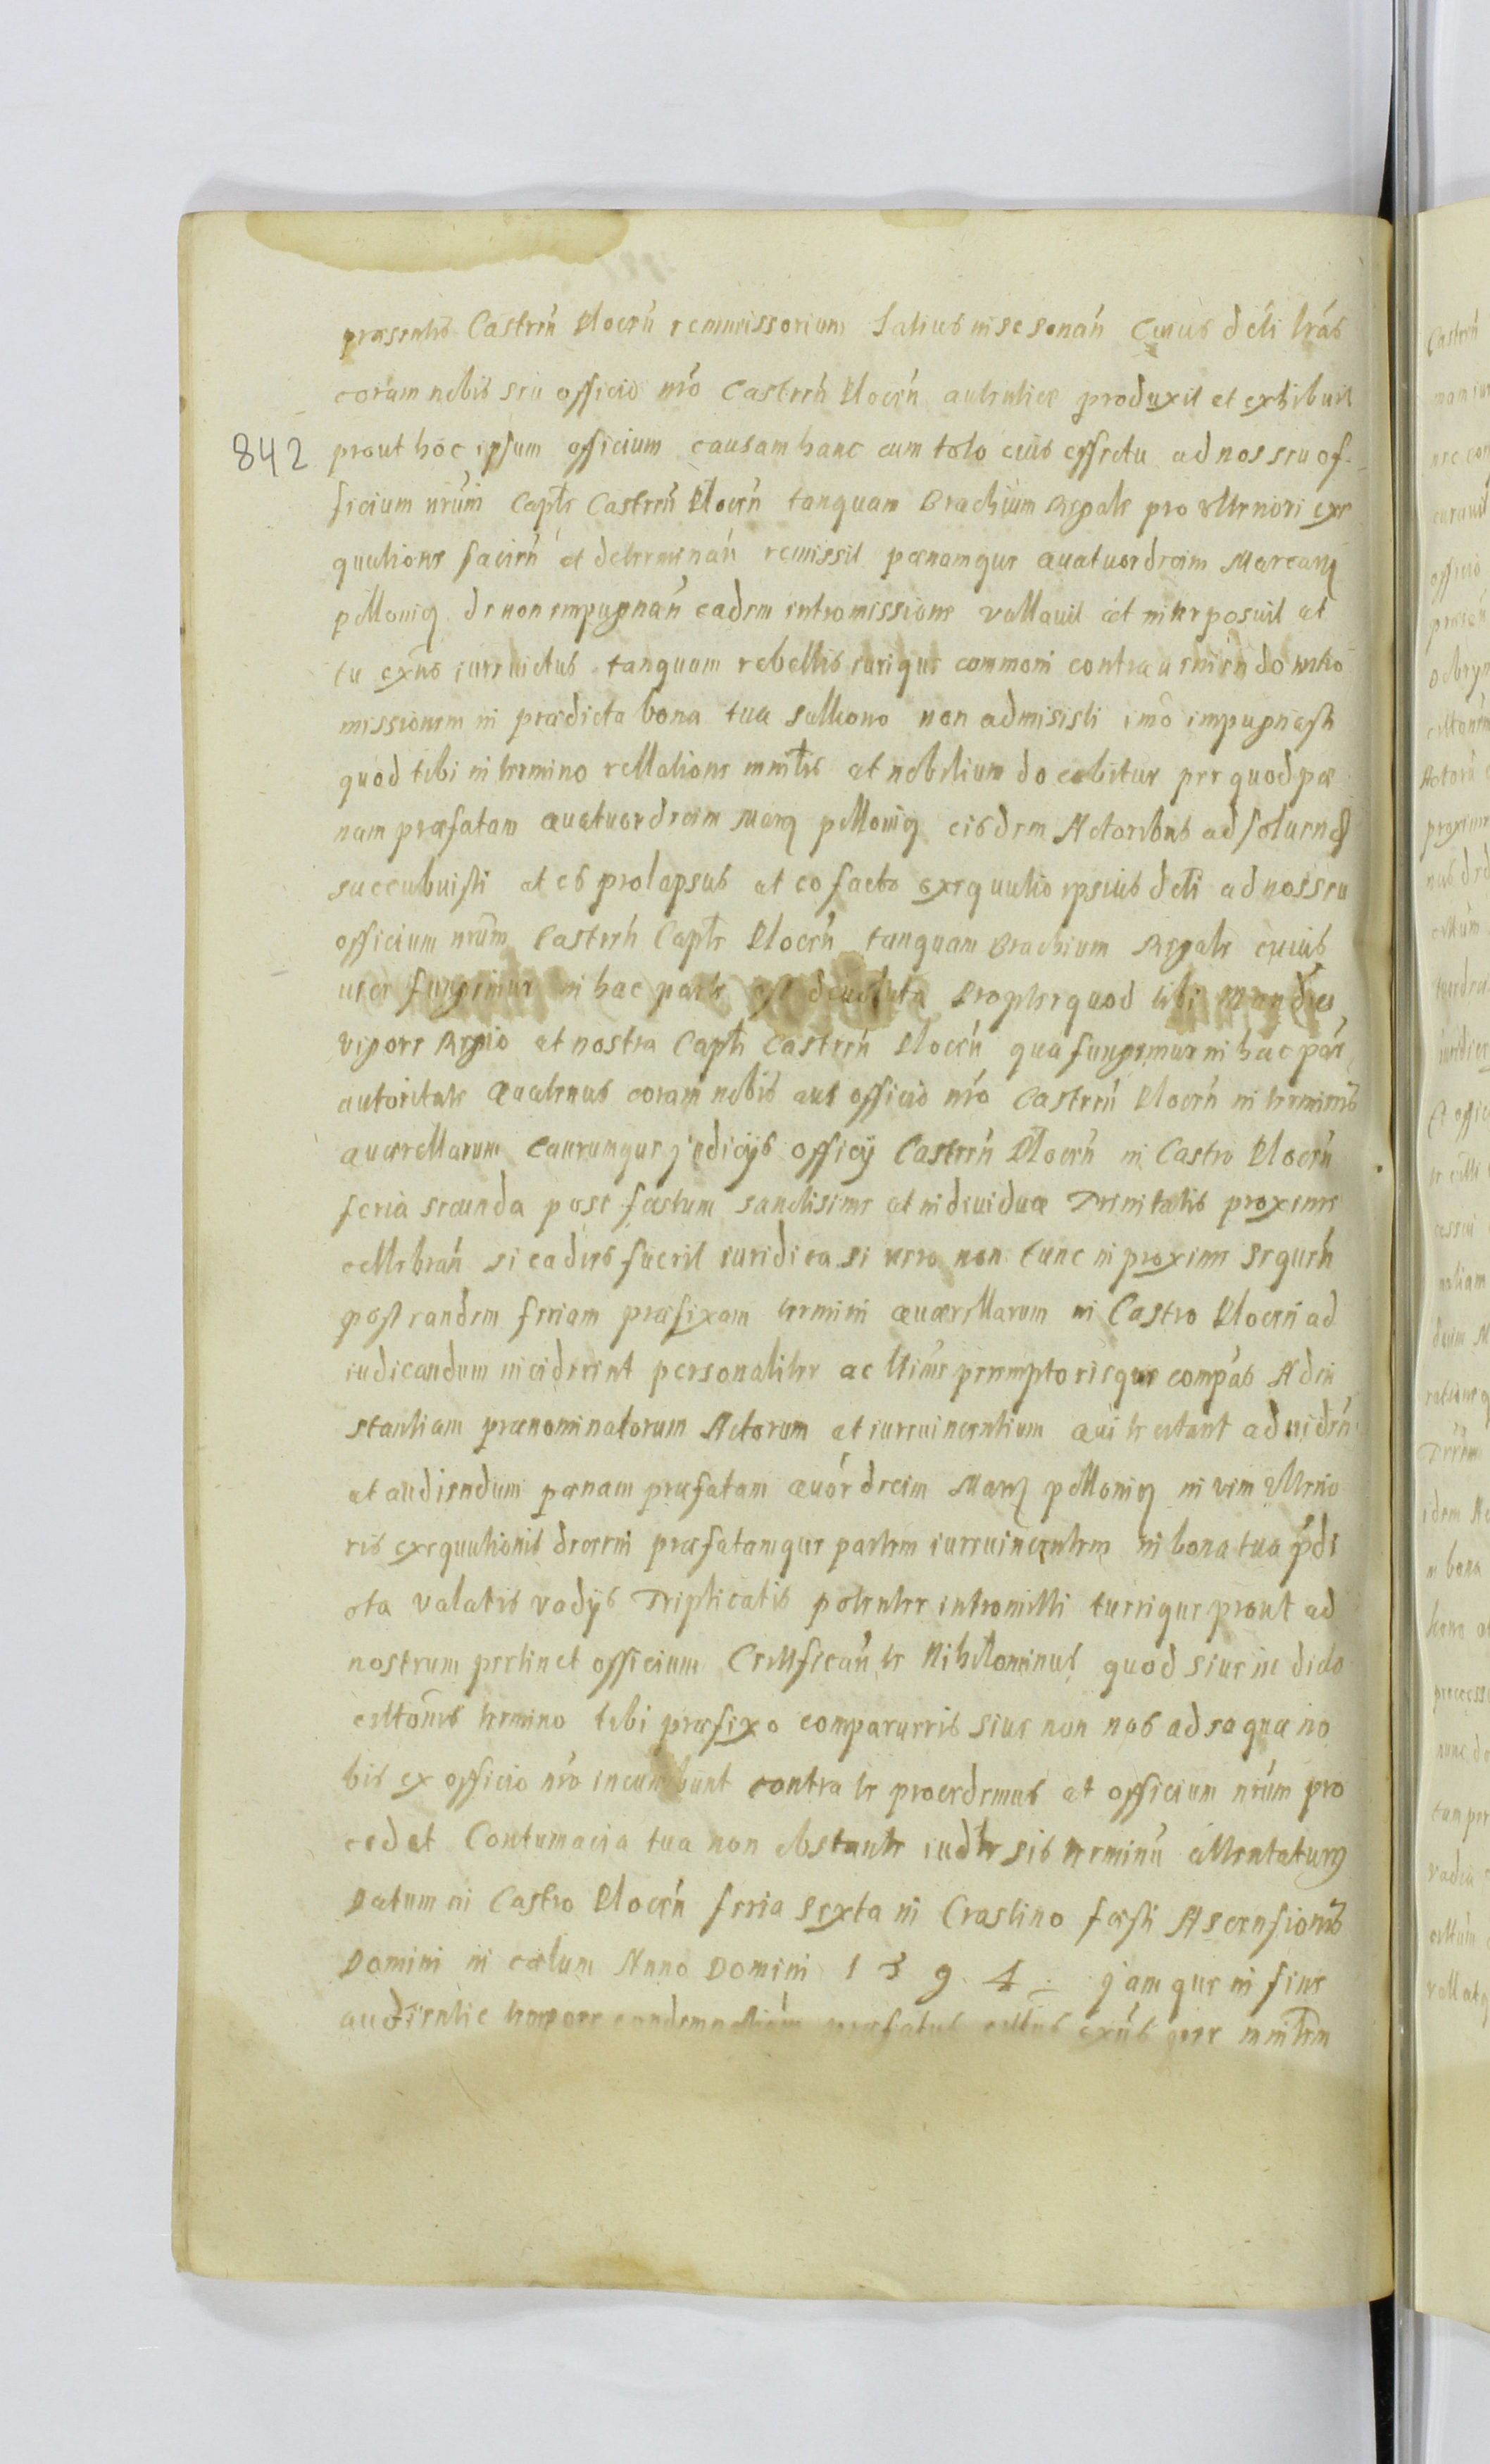 præsentis Castreń Plocen̄ remmissorium Latius in se sonań Cuius dc̄ti lrās
coram nobis seu officio nr̄o Castreń Ploceń autentice produxit et exhibuit
842 prout hoc ipsum officium causam hanc cum toto eius effectu ad nos seu of-
ficium nrūm Captle Castreń Ploceń tanquam Brachium Regale pro vlteriori exe
qutione facień et determinań remissit pænamque quatuordecim Marcarum
pollonic de non impugnań eadem intromissione vallauit et interposuit at
tu exn̄s iureuictus tanquam rebellis iurique commoni contraueniendo intro
missionem in prædicta bona tua sattiono non admisisti imo impugnasti
quod tibi in termino rellatione mnītis at nobilium docebitur per quod pæ
nam præfatam quatuordecim Marc pollonic eisdem Actoribus ad soluend
succubuisti at es prolapsus at eo facto exequutio ipsius dc̄ti ad nos seu
officium nrūm Castreń Captle Ploceń tanquam Brachium Regale cuius
uice fungimur in hac parte est deuoluta Propterquod tibi Mandes
vigore Regio at nostra Captli Castreń Ploceń qua fungimur in hac pār
autoritate Quatenus coram nobis aut officio nr̄o Castreń Ploceń in terminis
quærellarum Caurumque judicijs officij Castreń Ploceń in Castro Ploceń
feria secunda post fæstum sanctisime at indiuiduæ Trinitatis proxime
cellebrań si ea dies fuerit iuridica si uero non tunc in proxime sequeń
post eandem feriam præfixam termini quærellarum in Castro Ploceń ad
iudicandum inciderint personaliter ac ltime peremptorieque compās Ad in
stantiam prænominatorum Actorum at iureuincentium qui te citant ad uideń
at audiendum pænam præfatam quōrdecim Marc pollonic in vim vlterio
ris exequutionis decerni præfatamque partem iureuincentem in bona tua p̄di
cta valatis vadijs Triplicatis potenter intromitti tuerique prout ad
nostrum pertinet officium Certifficań te Nihilominus quod siue in dicto
cittōnis termino tibi præfixo comparueris siue non nos ad ea quæ no
bis ex officio nr̄o incumbunt contra te procedemus at officium nrūm pro
cedet Contumacia tua non obstante iudtr sis terminū attentaturus
Datum in Castro Ploceń feria sexta in Crastino fæsti Ascensionis
Domini in cælum Anno Domini 1594. jamque in fine
audientie præfatus cittus exn̄s per mnītrm